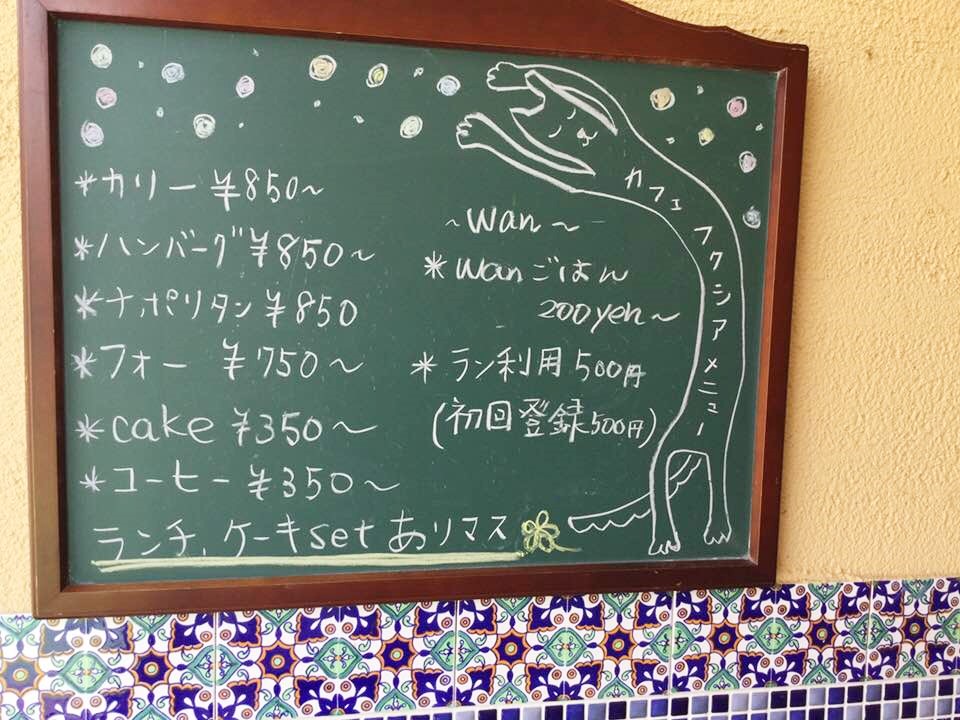 *カリー ¥850~
*ハンバーグ ¥850~
*ナポリタン ¥850
*フォー ¥750~
*cake ¥350~
*コーヒー ¥350~
ランチ、ケーキset ありマス
~Wan~
*Wanごはん
200yen~
*ラン利用 500円
(初回登録500円)
カフェ フクシアメニュー